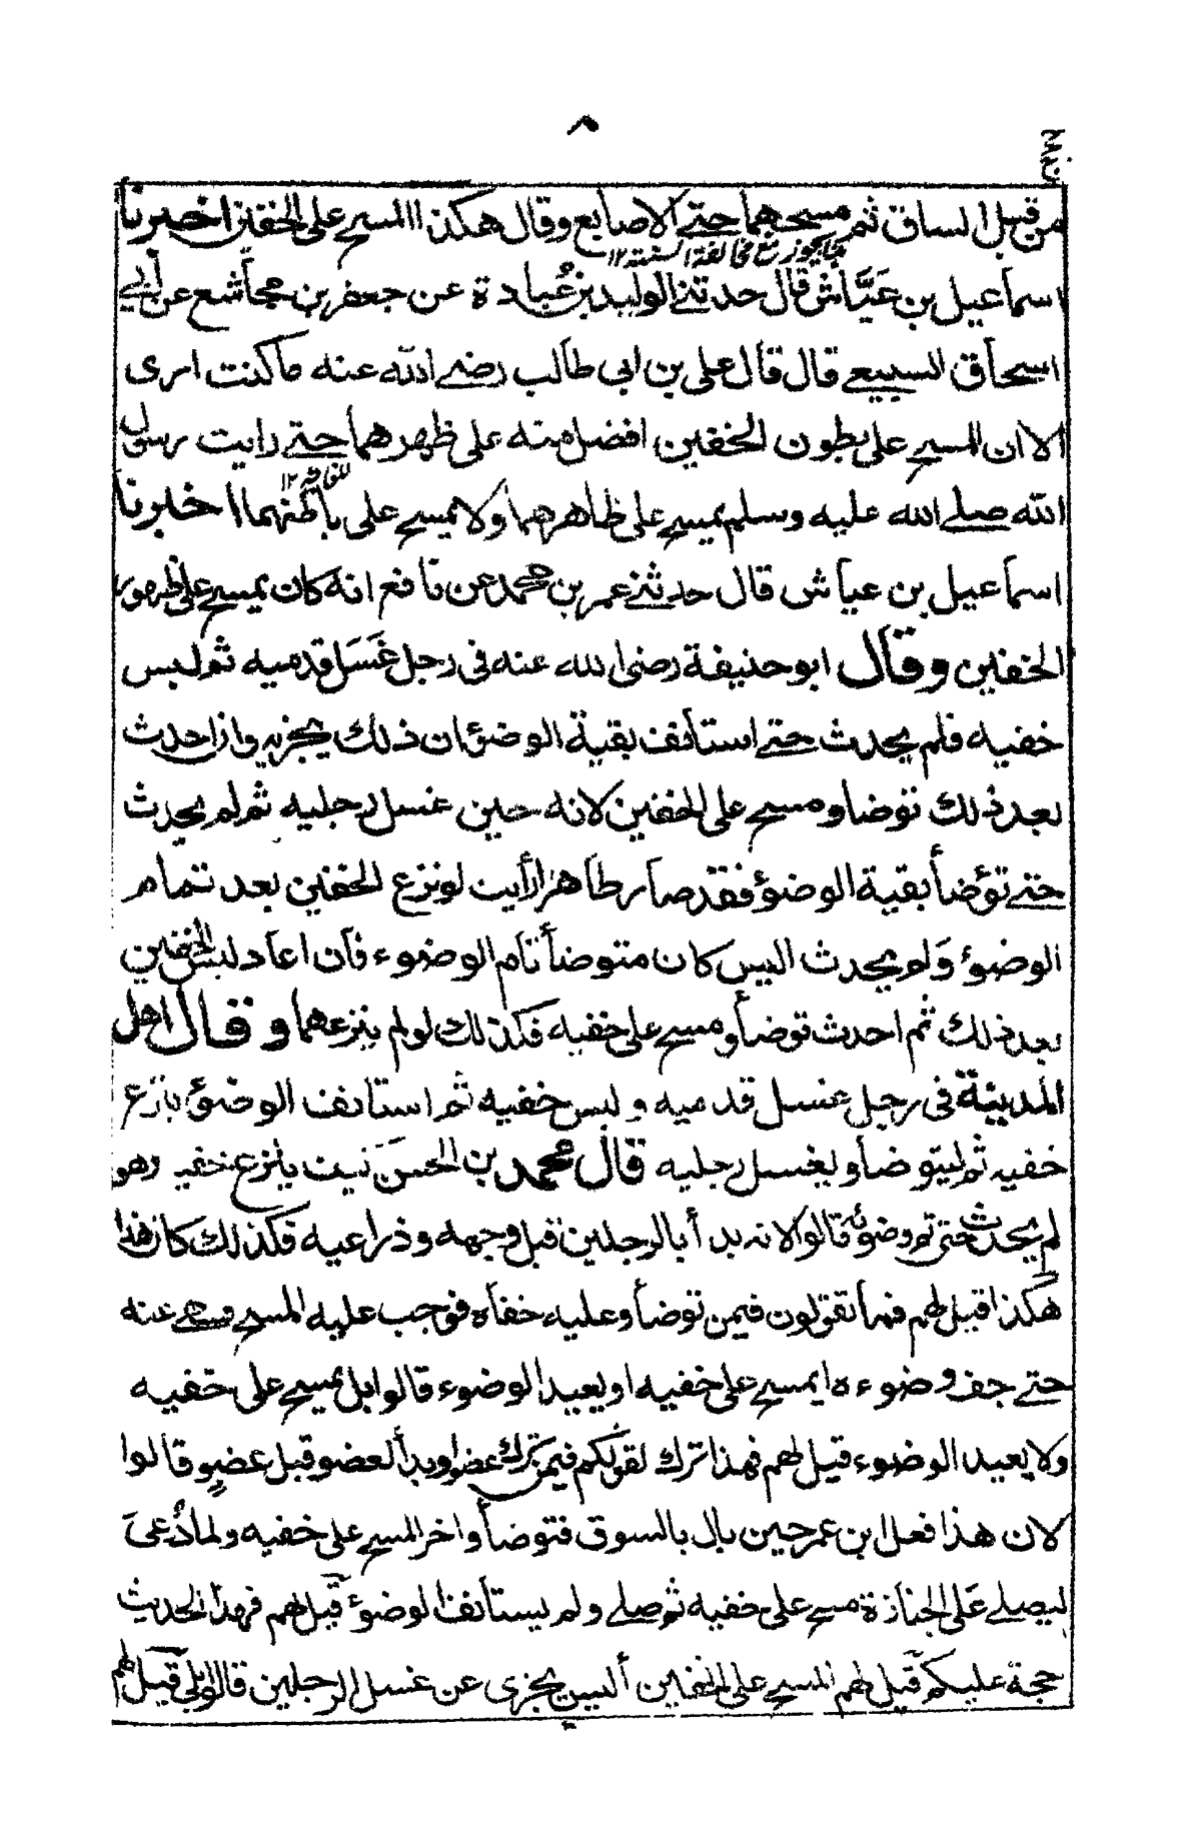 ٨
من قبل الساق ثم مسحهما حتے الاصابع وقال هكذا المسح على الخفين اخبرنا
اسماعيل بن عَيَّاش قال حدثنے الوليد بن عُبادة عن جعفر بن مجاشع عن ابے
اسحاق السبيعے قال قال على بن ابى طالب رضے الله عنه ما كنت ارى
الا ان المسح على بطون الخفين افضل منه على ظهرهما حتے رايت رسول
الله صلے الله عليه وسلم يمسح على ظاهرهما ولا يمسح على باطنهما اخبرنا
اسماعيل بن عياش قال حدثنے عمر بن محمد عن نافع انه كان يمسح على ظهور
الخفين وقال ابو حنيفة رضى الله عنه فى رجل غَسَل قدميه ثم لبس
خفيه فلم يحدث حتے استانف بقية الوضوء ان ذلك يجزيه وان احدث
بعد ذلك توضا ومسح على الخفين لانه حين غسل رجليه ثم لم يحدث
حتے توضأ بقية الوضوء فقد صار طاهرا أرأيت لو نزع الخفين بعد تمام
الوضوء وَلم يحدث اليس كان متوضأ تام الوضوء فان اعاد لبس الخفين
بعد ذلك ثم احدث توضأ ومسح على خفيه فكذلك لو لم ينزعهما وقال اهل
المدينة فى رجل غسل قدميه ولبس خفيه ثم استانف الوضوء ينزع
خفيه ثم ليتوضأ وليغسل رجليه قال محمد بن الحسن ينزع خفيه وهو
لم يحدث حتى تم وضوئه قالوا لانه بدأ بالرجلين قبل وجهه وذراعيه فكذلك كان هذا
هكذا قيل لهم فما تقولون فيمن توضأ وعليه خفاه فوجب عليه المسح وسهے عنه
حتے جف وضوءه ايمسح على خفيه او يعيد الوضوء قالوا بل يمسح على خفيه
ولا يعيد الوضوء قيل لهم فهذا ترك لقولكم فيمن ترك عضوا وبدأ لعضو قبل عضو قالوا
لان هذا فعل ابن عمر حين بال بالسوق فتوضأ واخر المسح على خفيه ولما دُعىَ
ليصلے عَلى الجنازة مسح على خفيه ثم صلے ولم يستانف الوضوء قيل لهم فهذا الحديث
حجة عليكم قيل لهم المسح على الخفين أليس يجزى عن غسل الرجلين قالوا بلى قيل لهم